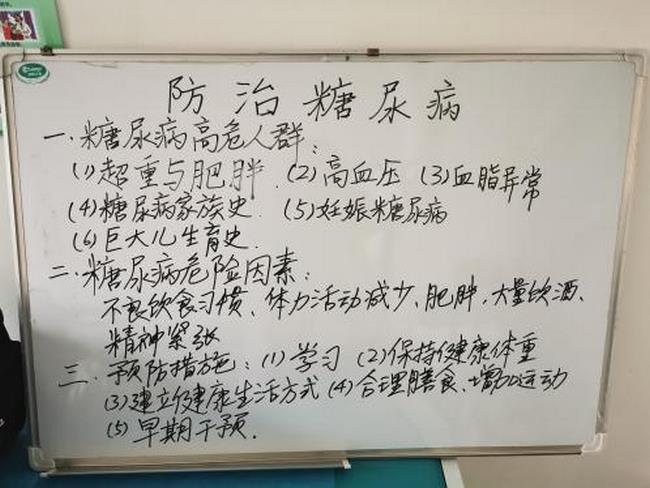 防治糖尿病
一.糖尿病高危人群:
(1)超重与肥胖.(2)高血压 (3)血脂异常
(4)糖尿病家族史.(5)妊娠糖尿病
(6)巨大儿生育史.
二.糖尿病危险因素:
不良饮食习惯、体力活动减少、肥胖,大量饮酒、
精神紧张
三.预防措施:(1)学习 (2)保持健康体重
(3)建立健康生活方式 (4)合理膳食、增加运动
(5)早期干预.